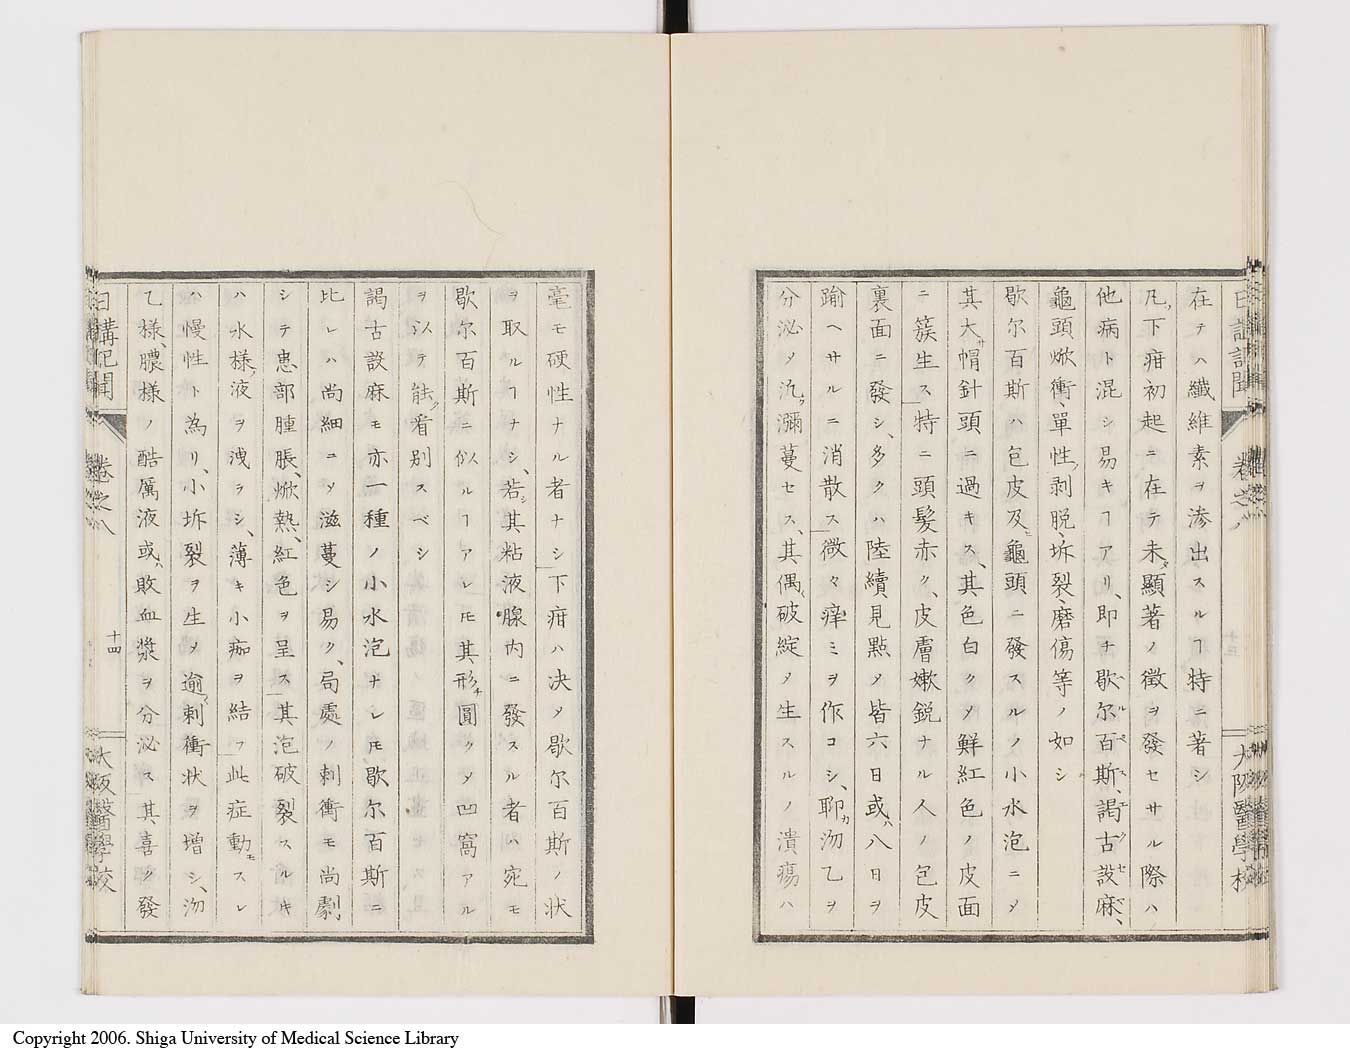 日講記聞 卷之八 十三 大阪醫學校
在テハ纖維素ヲ滲出スルヿ特ニ著シ
凡ソ下疳初起ニ在テ未タ顯著ノ徴ヲ發セサル際ハ
他病ト混シ易キヿアリ、即チ歇尔百斯、謁古設麻、
龜頭焮衝、單性剥脱、坼裂、磨傷等ノ如シ
歇尔百斯ハ包皮及ヒ龜頭ニ發スルノ小水泡ニメ
其大サ帽針頭ニ過キス、其色白クメ鮮紅色ノ皮面
ニ簇生ス特ニ頭髮赤ク、皮膚嫩鋭ナル人ノ包皮
裏面ニ發シ、多クハ陸續見點メ皆六日或ハ八日ヲ
踰ヘサルニ消散ス微々痒ミヲ作コシ、聊カ沕乙ヲ
分泌メ汎ク瀰蔓セス、其偶破綻メ生スルノ潰瘍ハ
毫モ硬性ナル者ナシ下疳ハ决メ歇尔百斯ノ状
ヲ取ルヿナシ、若シ其粘液腺内ニ發スル者ハ宛モ
歇尔百斯ニ似ルヿアレ𪜈其形チ圓クメ凹窩アル
ヲ以テ能ク看別スベシ
謁古設麻モ亦一種ノ小水泡ナレ𪜈歇尔百斯ニ
比レハ尚細ニメ滋蔓シ易ク、局處ノ刺衝モ尚劇
シテ患部腫脹、焮熱、紅色ヲ呈ス其泡破裂スルキ
ハ水樣ノ液ヲ洩ラシ、薄キ小痂ヲ結フ此症動モスレ
ハ慢性ト為リ、小坼裂ヲ生メ逾刺衝状ヲ增シ、沕
乙樣、膿樣ノ酷厲液或ハ敗血漿ヲ分泌ス其喜ク發
日講記聞 卷之八 十四 大阪醫學校
Copyright 2006. Shiga University of Medical Science Library